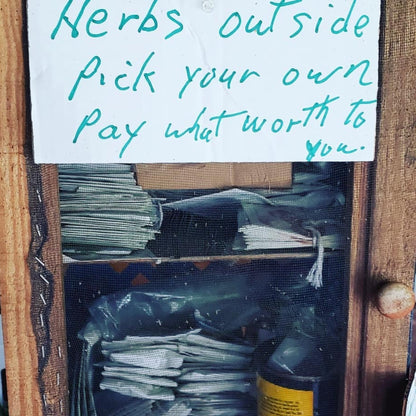 Herbs outside
Pick your own
Pay what worth to
you.